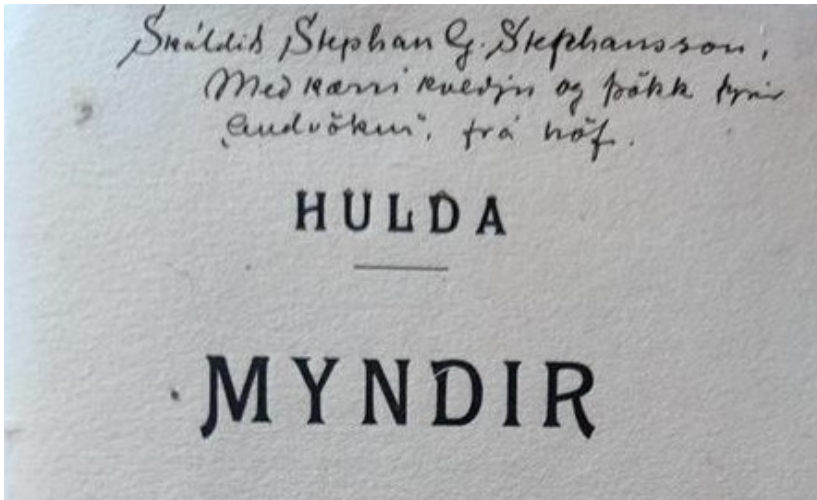 Skáldið Stephan G. Stephansson,
Með kærri kveðju og þökk fyrir
„Andvökur“, frá höf.
HULDA
MYNDIR